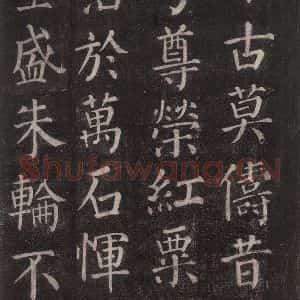 古莫儔昔
尊榮紅粟
於萬石惲
盛朱輪不
Shufawang.CN